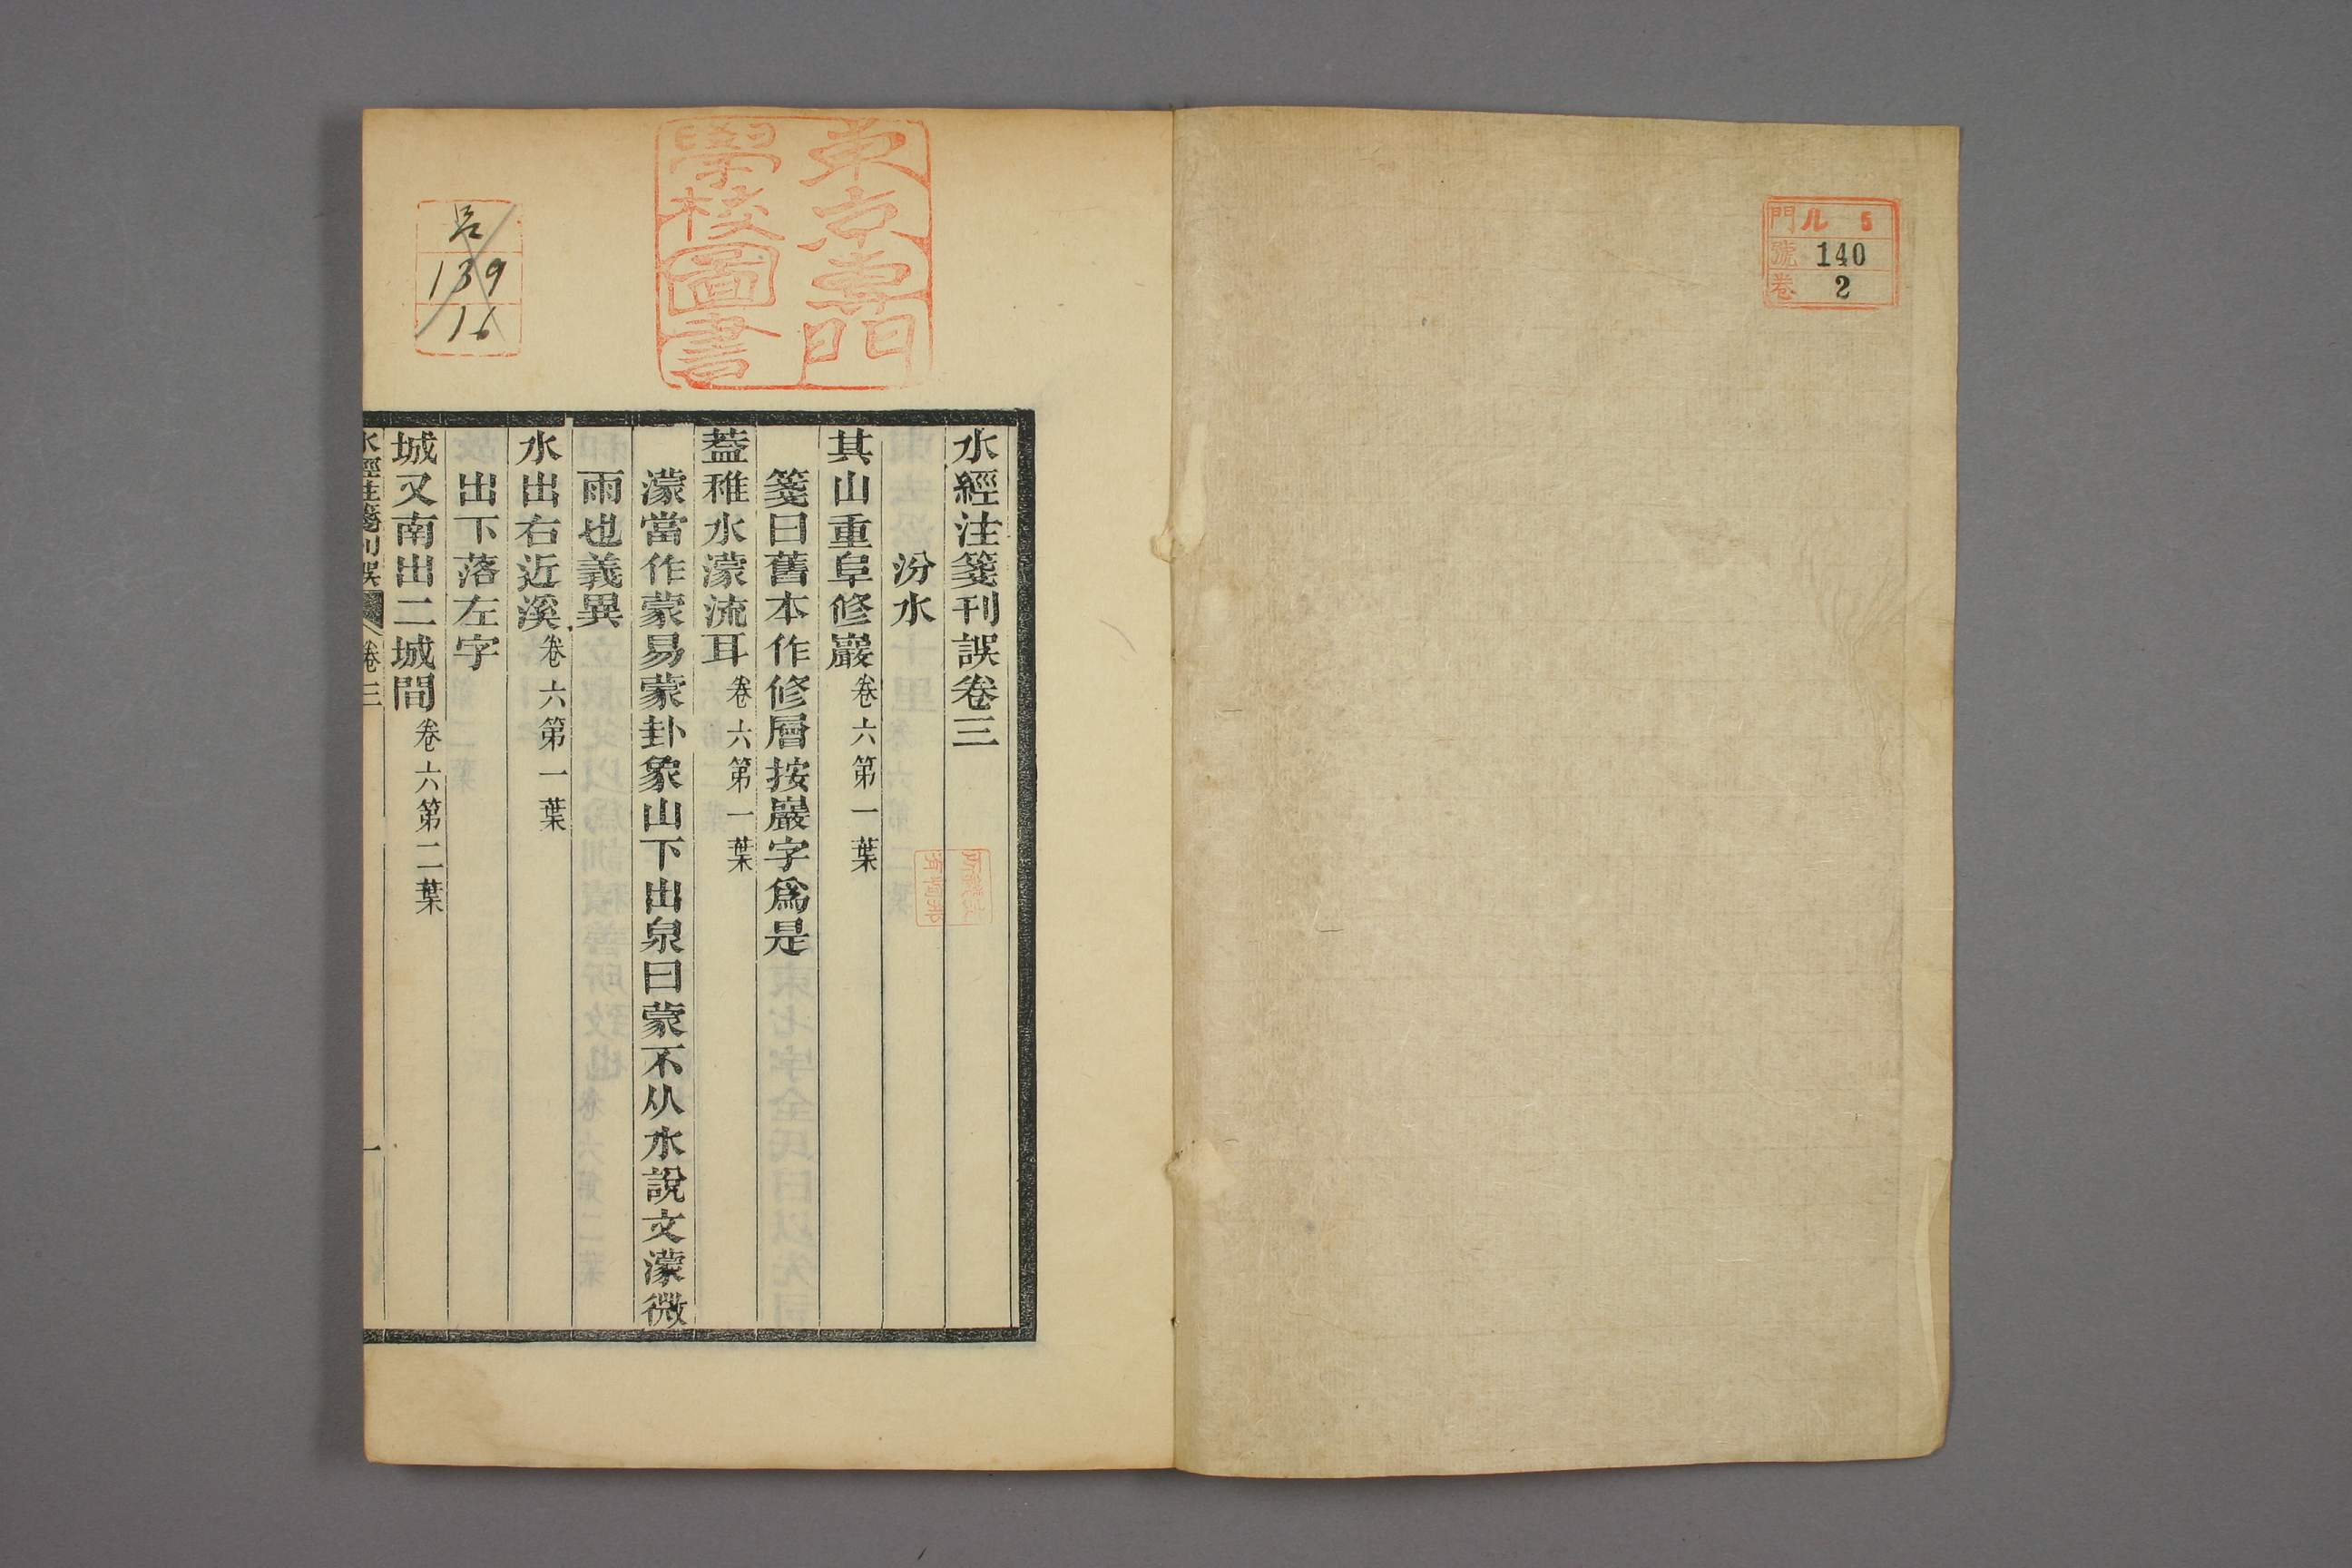 門 ル 5
號 140
卷 2
東京專門
學校圖書
139
16
水經注箋刊誤卷三
汾水
其山重阜修巖卷六第一葉
箋曰舊本作修層按巖字爲是
葢稚水濛流耳卷六第一葉
濛當作蒙易蒙卦象山下出泉曰蒙不从水說文濛微
雨也義異
水出右近溪卷六第一葉
出下落左字
城又南出二城間卷六第二葉
水經注箋刊誤 卷三 一